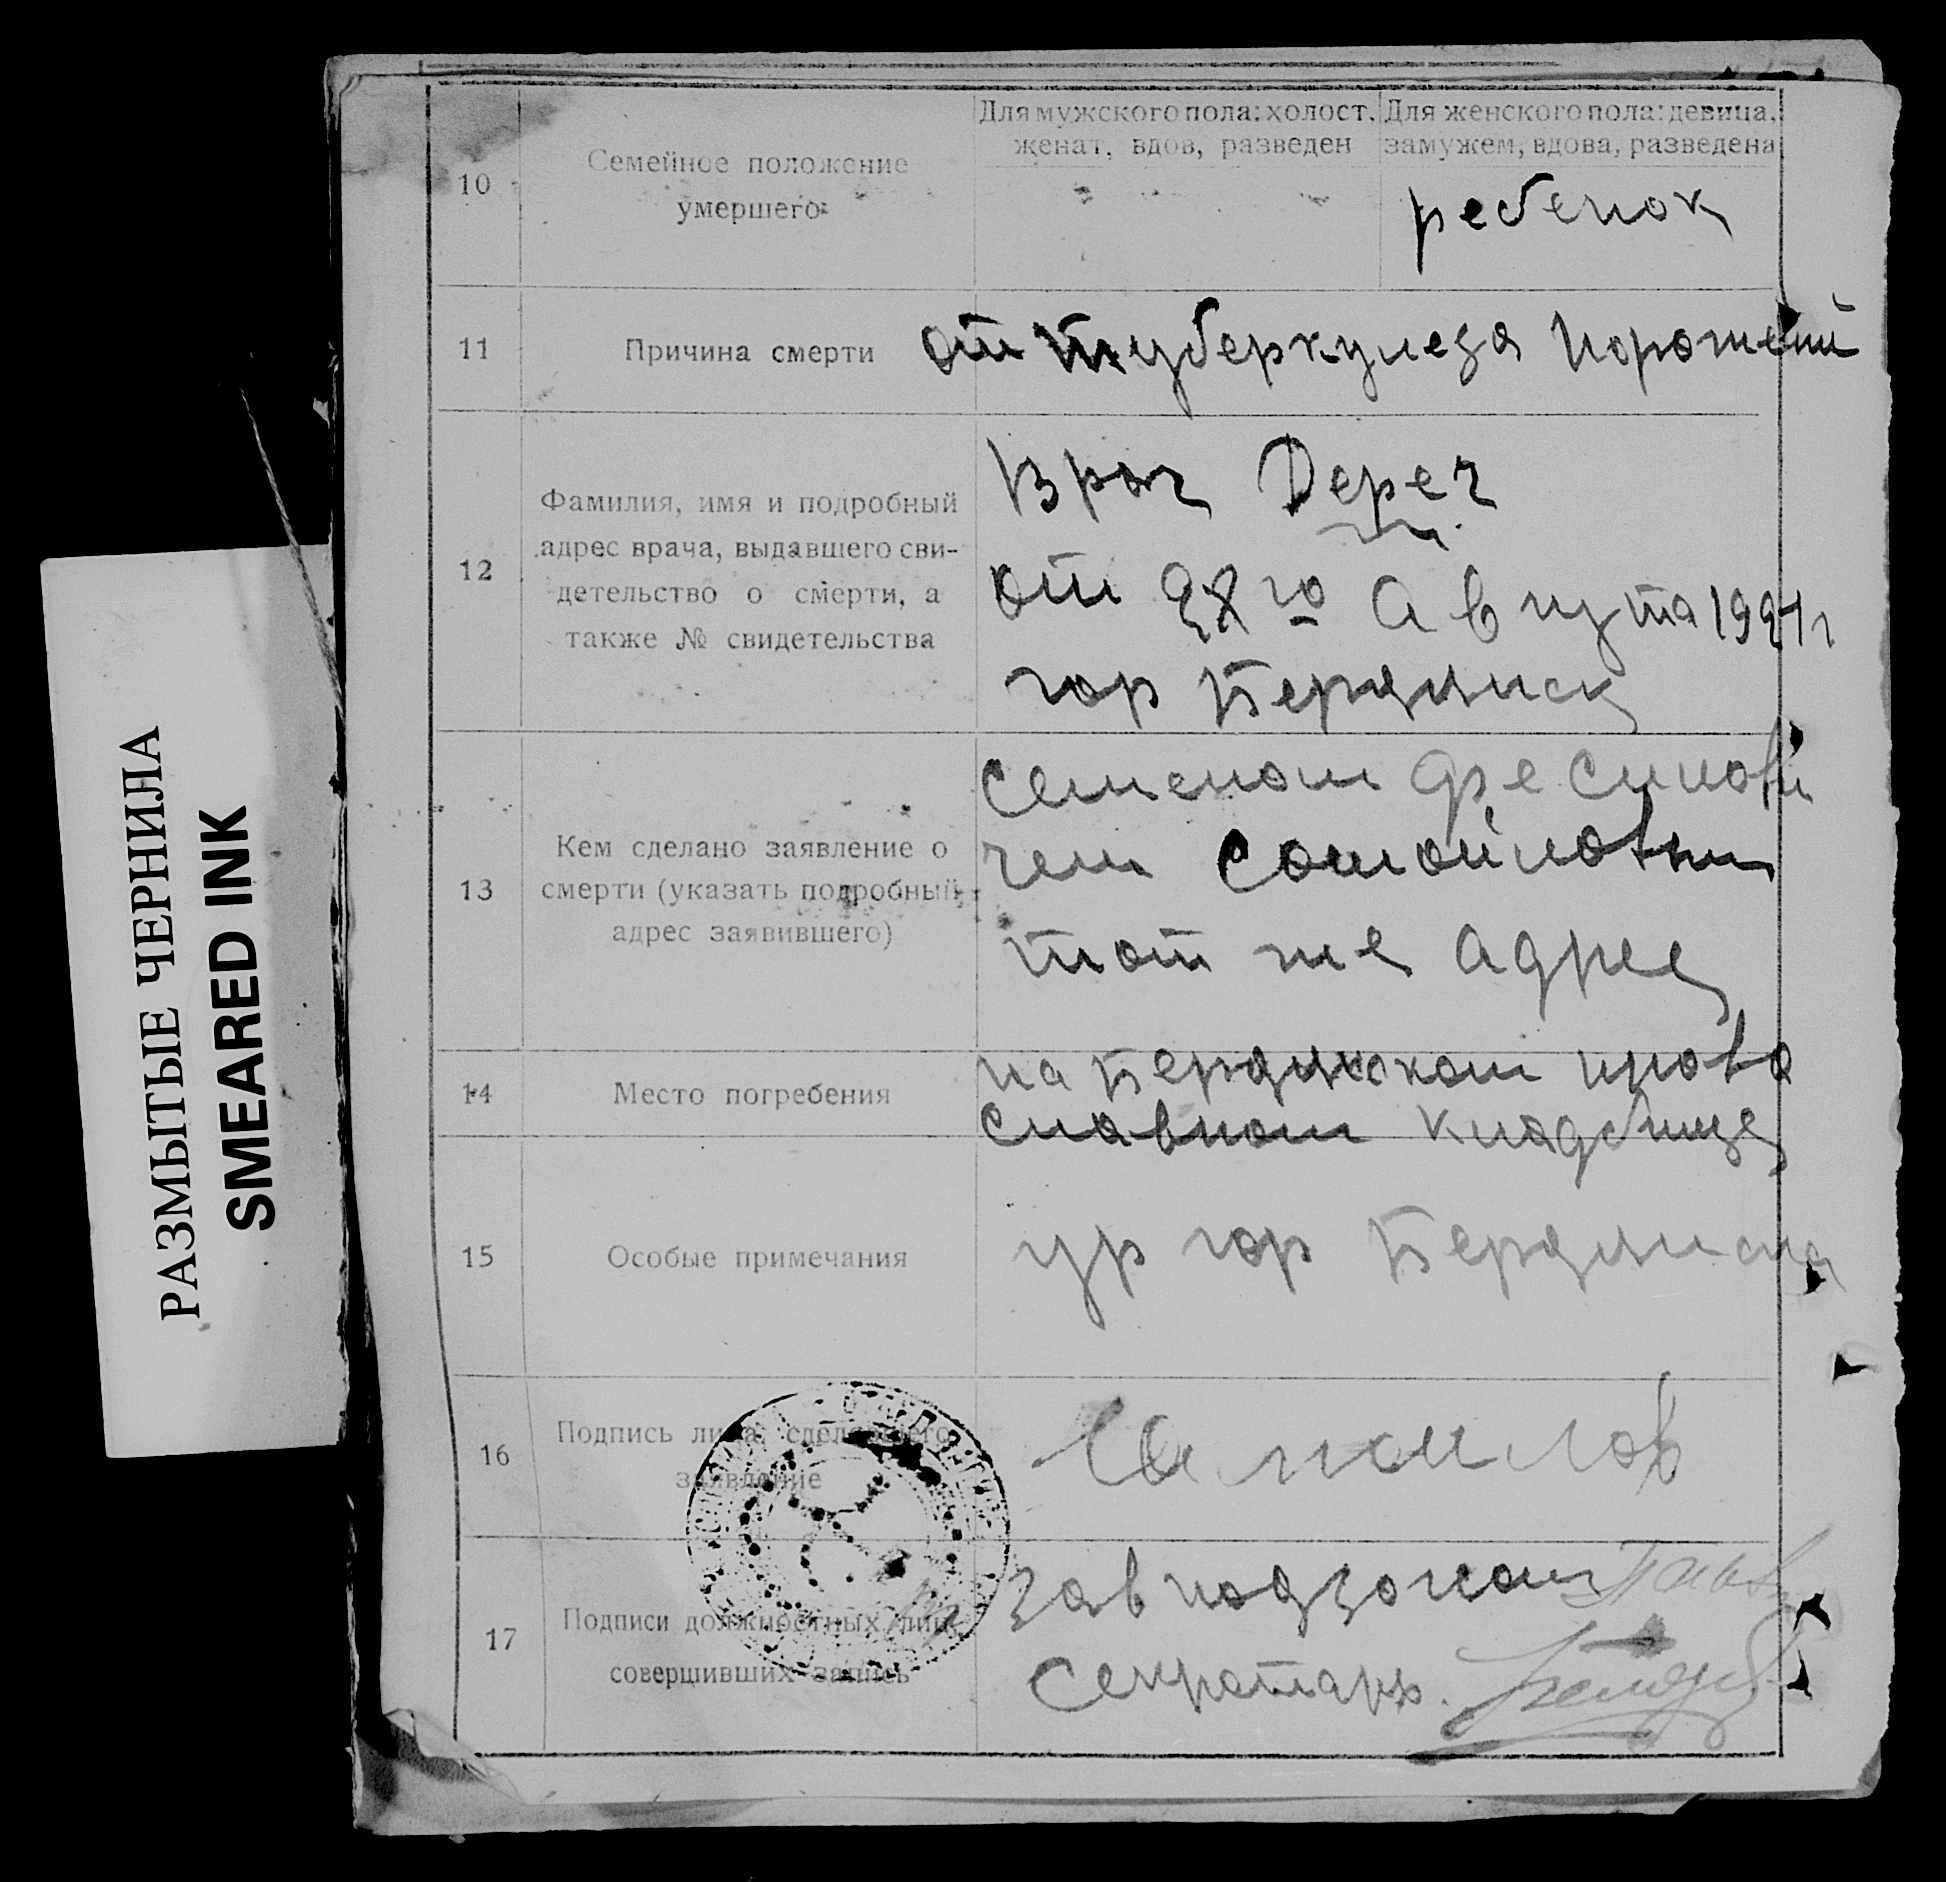 РАЗМЫТЫЕ ЧЕРНИЛА
SMEARED INK
10
Семейное положение
умершего
Для мужского пола: холост,
женат, вдов, разведен
Для женского пола: девица,
замужем, вдова, разведена
ребенок
11
Причина смерти
от туберкулеза
12
Фамилия, имя и подробный
адрес врача, выдавшего сви-
детельство о смерти, а
также № свидетельства
Врач Дереч
от 28 го Августа 1921 г
гор Бердянск
13
Кем сделано заявление о
смерти (указать подробный
адрес заявившего)
Семеном
чем Самойловым
тот же адрес
14
Место погребения
на Бердянском право
славном кладбище
15
Особые примечания
ур гор Бердянска
16
Подпись лица, сделавшего
заявление
17
Подписи должностных лиц,
совершивших запись
Зав подзагсом
Секретарь